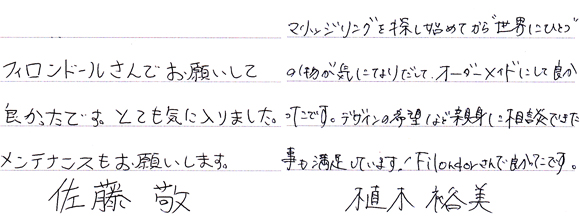 フィロンドールさんでお願いして
良かったです。とても気に入りました。
メンテナンスもお願いします。
佐藤 敬
マリッジリングを探し始めてから"世界にひとつ"
の物が気になりだして、オーダーメイドにして良か
ったです。デザインの希望など親身に相談できた
事も満足しています！Filondorさんで良かったです。
植木 裕美